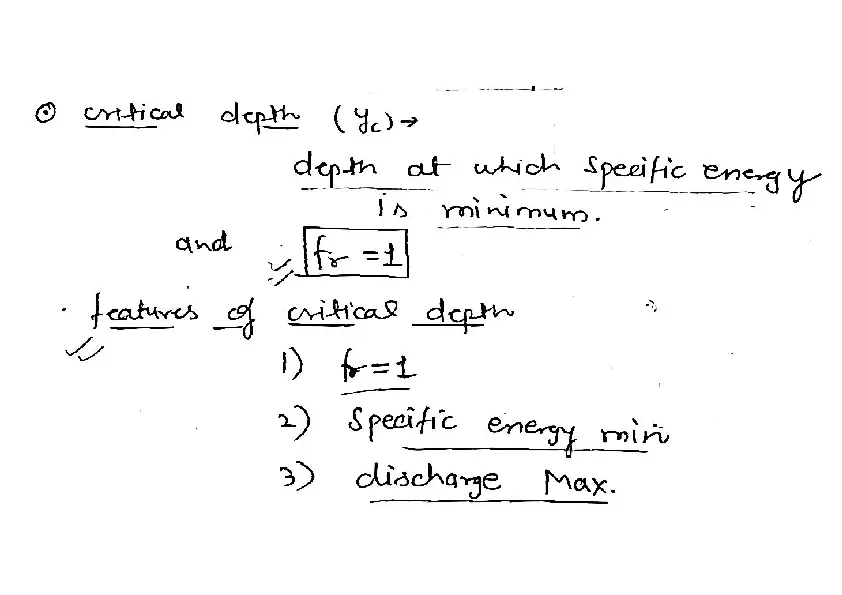 ⊙ critical depth (yc) →
depth at which specific energy
is minimum.
and fr = 1
· features of critical depth
1) fr = 1
2) Specific energy min
3) discharge Max.